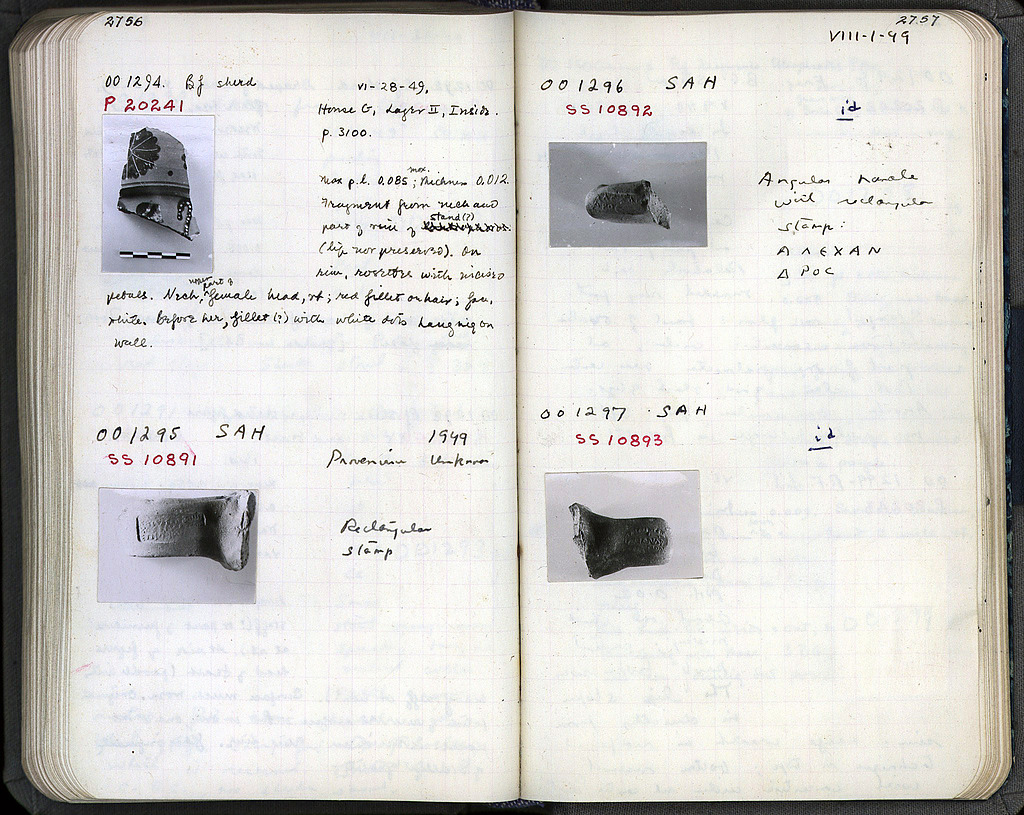 2756
OO 1294. Bf sherd
P 20241
VI-28-49,
House G, Layer II, Inside.
p. 3100.
Max p.l. 0.085; max. thickness 0.012.
Fragment from neck and
part of rim of stand(?)
(lip not preserved). On
rim, rosettes with incised
petals. Neck, upper part of female head, rt; red fillet on hair; face,
white. Before her, fillet (?) with white dots hanging on
wall.
OO 1295 SAH
SS 10891
1949
Provenience Unknown
Rectangular
stamp
2757
VIII-1-49
OO 1296 SAH
SS 10892
id
Angular handle
with rectangular
stamp:
ΑΛΕΧΑΝ
ΔΡΟC
OO 1297 SAH
SS 10893
id